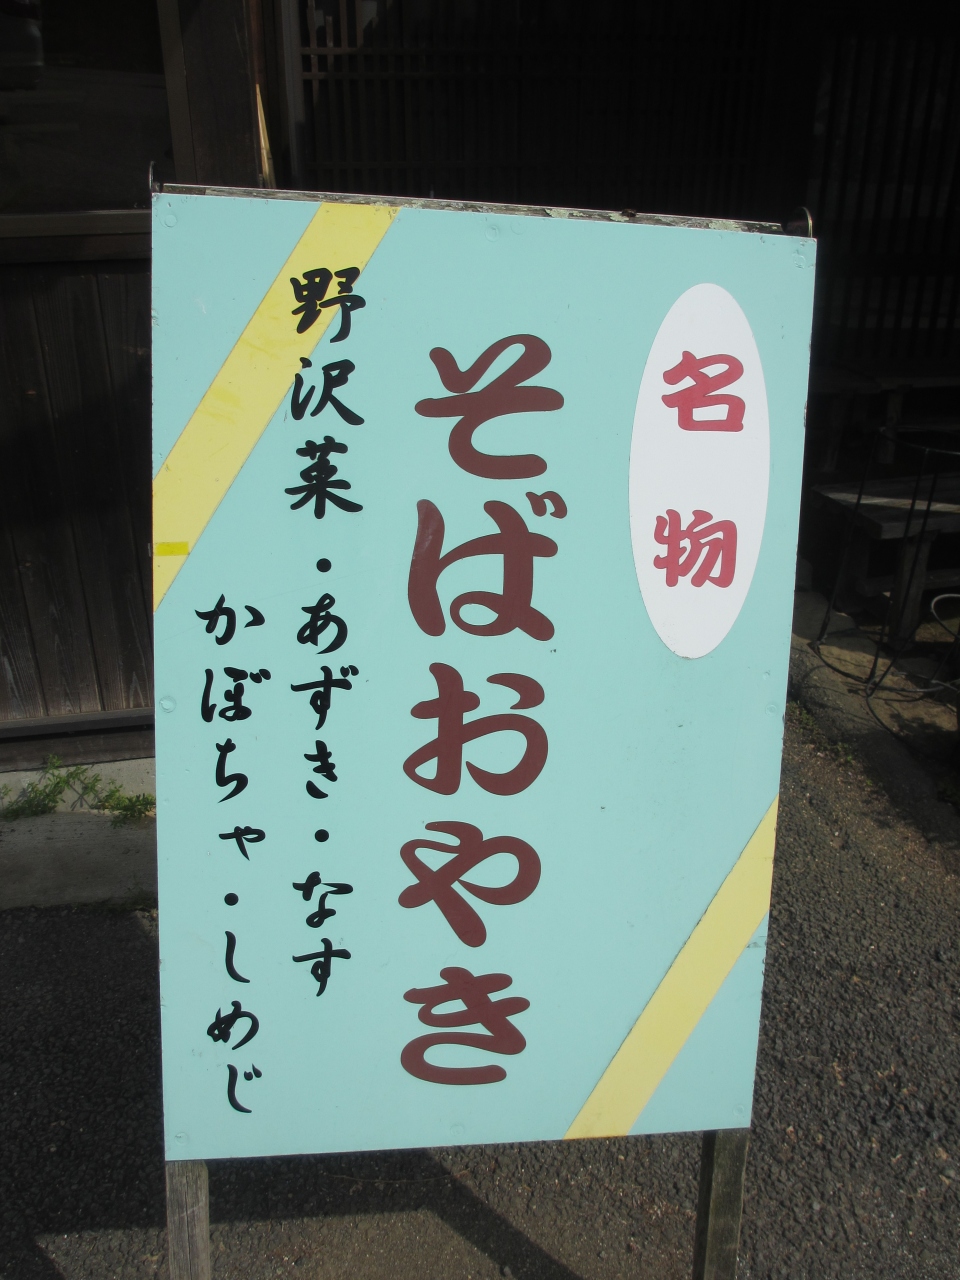 名物
そばおやき
野沢菜・あずき・なす
かぼちゃ・しめじ